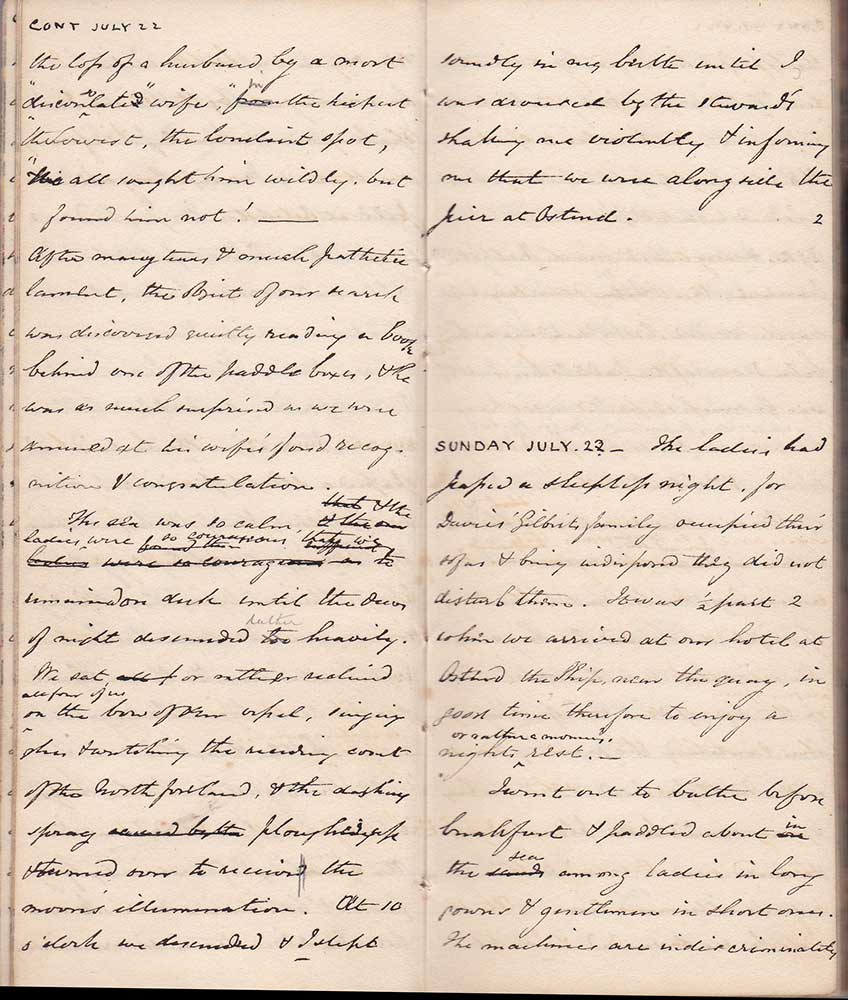 CONT JULY 22
the loss of a husband by a most
"disconolated" wife, "from in the highest
"the lowest, the loneliest spot,
"We all sought him wildly. but
found him not! —
After many tears & much pathetic
lament, the object of our search
was discovered quietly reading a book
behind one of the paddle boxes, & he
was as much surprised as we were
amused at his wife's fond recog-
nition & congratulation.
that & the
The sea was so calm,
ladies were so courageous that we
ladies were so courageous as to
remained on deck until the dews
of night descended too rather heavily.
We sat, all f or rather reclined
all four of us
on the bow of our vessel, singing
glees & watching the receding coast
of the North foreland, & the dashing
spray caused by the ploughed up
& turned over to receive the
moon's illumination. At 10
o'clock we descended & I slept
soundly in my berth until I
was aroused by the stewards
shaking me violently & informing
me that we were alongside the
pier at Ostend. 2
SUNDAY JULY. 23 — The ladies had
passed a sleepless night. for
Davies Gilbert's family occupied their
sofas & being indisposed they did not
disturb them. It was ½ past 2
when we arrived at our hotel at
Ostend the Ship, near the quay, in
good time therefore to enjoy a
or rather a morning's
nights rest. —
I went out to bathe before
breakfast & paddled about in
the sands sea among ladies in long
gowns & gentlemen in short ones.
The machines are indiscriminately